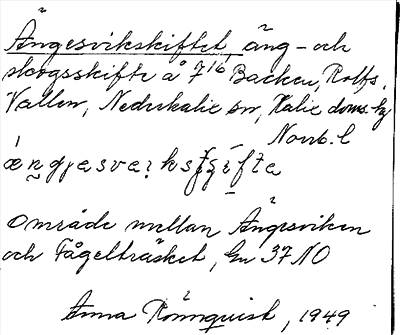 Ängesvikskiftet, äng- och
skogsskifte å 7/16 Backen, Rolfs,
Vallen, Nederkalix sn, Kalix doms. hg
Norrb. l
område mellan Ängesviken
och Fågelträsket, Gn 37 NO
Anna Rönnquist, 1949